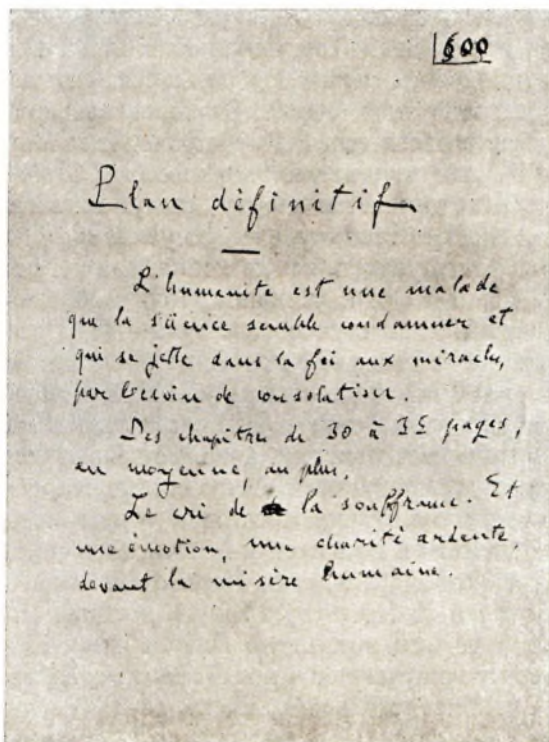 600
Plan définitif
L'humanité est une malade
que la science semble condamner et
qui se jette dans la foi aux miracles,
par besoin de consolation.
Des chapitres de 30 à 35 pages,
en moyenne, au plus.
Le cri de la souffrance. Et
une émotion, une charité ardente,
devant la misère humaine.